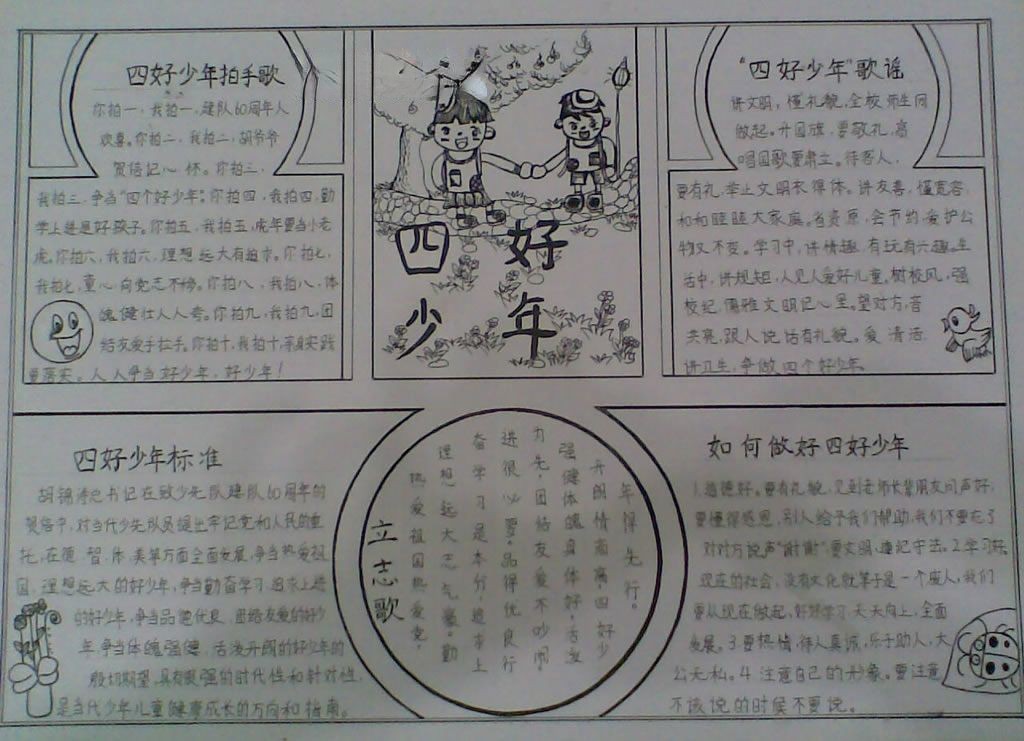 四好少年拍手歌
你拍一，我拍一，建队60周年人
欢喜。你拍二，我拍二，胡爷爷
贺信记心怀。你拍三，
我拍三，争当“四个好少年”。你拍四，我拍四，勤
学上进是好孩子。你拍五，我拍五，虎年要当小老
虎。你拍六，我拍六，理想远大有追求。你拍七，
我拍七，童心向党志不移。你拍八，我拍八，体
魄健壮人人夸。你拍九，我拍九，团
结友爱手拉手。你拍十，我拍十，落实
要落实。人人争当好少年，好少年！
四好
少年
“四好少年”歌谣
讲文明，懂礼貌，全校师生同
做起。升国旗，要敬礼，高
唱国歌要肃立。待客人，
要有礼，举止文明衣得体。讲友善，懂宽容，
和和睦睦大家庭。省资源，会节约，爱护公
物又不变。学习中，讲情趣，有玩有兴趣。生
活中，讲规矩，人见人爱好儿童。树校风，强
校纪，儒雅文明记心里。望对方，音
洪亮，跟人说话有礼貌。爱清洁，
讲卫生，争做四个好少年。
四好少年标准
胡锦涛总书记在致少先队建队60周年的
贺信中，对当代少先队员提出牢记党和人民的重
托，在德、智、体、美等方面全面发展，争当热爱祖
国、理想远大的好少年，争当勤奋学习、追求上进
的好少年，争当品德优良、团结友爱的好少
年，争当体魄强健、活泼开朗的好少年的
殷切期望，具有很强的时代性和针对性，
是当代少年儿童健康成长的方向和指南。
立志歌
热爱祖国热爱党，
理想远大志气豪。勤
奋学习是本分，追求上
进很必要。品得优良行
为先，团结友爱不吵闹。
强健体魄身体好，活泼
开朗情商高。四好少
年得先行。
如何做好四好少年
1.道德好。要有礼貌，见到老师长辈朋友问声好，
要懂得感恩，别人给予我们帮助，我们不要忘了
对对方说声“谢谢”要文明，遵纪守法。2.学习好。
现在的社会，没有文化就等于是一个废人，我们
要从现在做起，好好学习，天天向上，全面
发展。3.要热情，待人真诚，乐于助人，大
公无私。4.注意自己的形象。要注意
不该说的时候不要说。